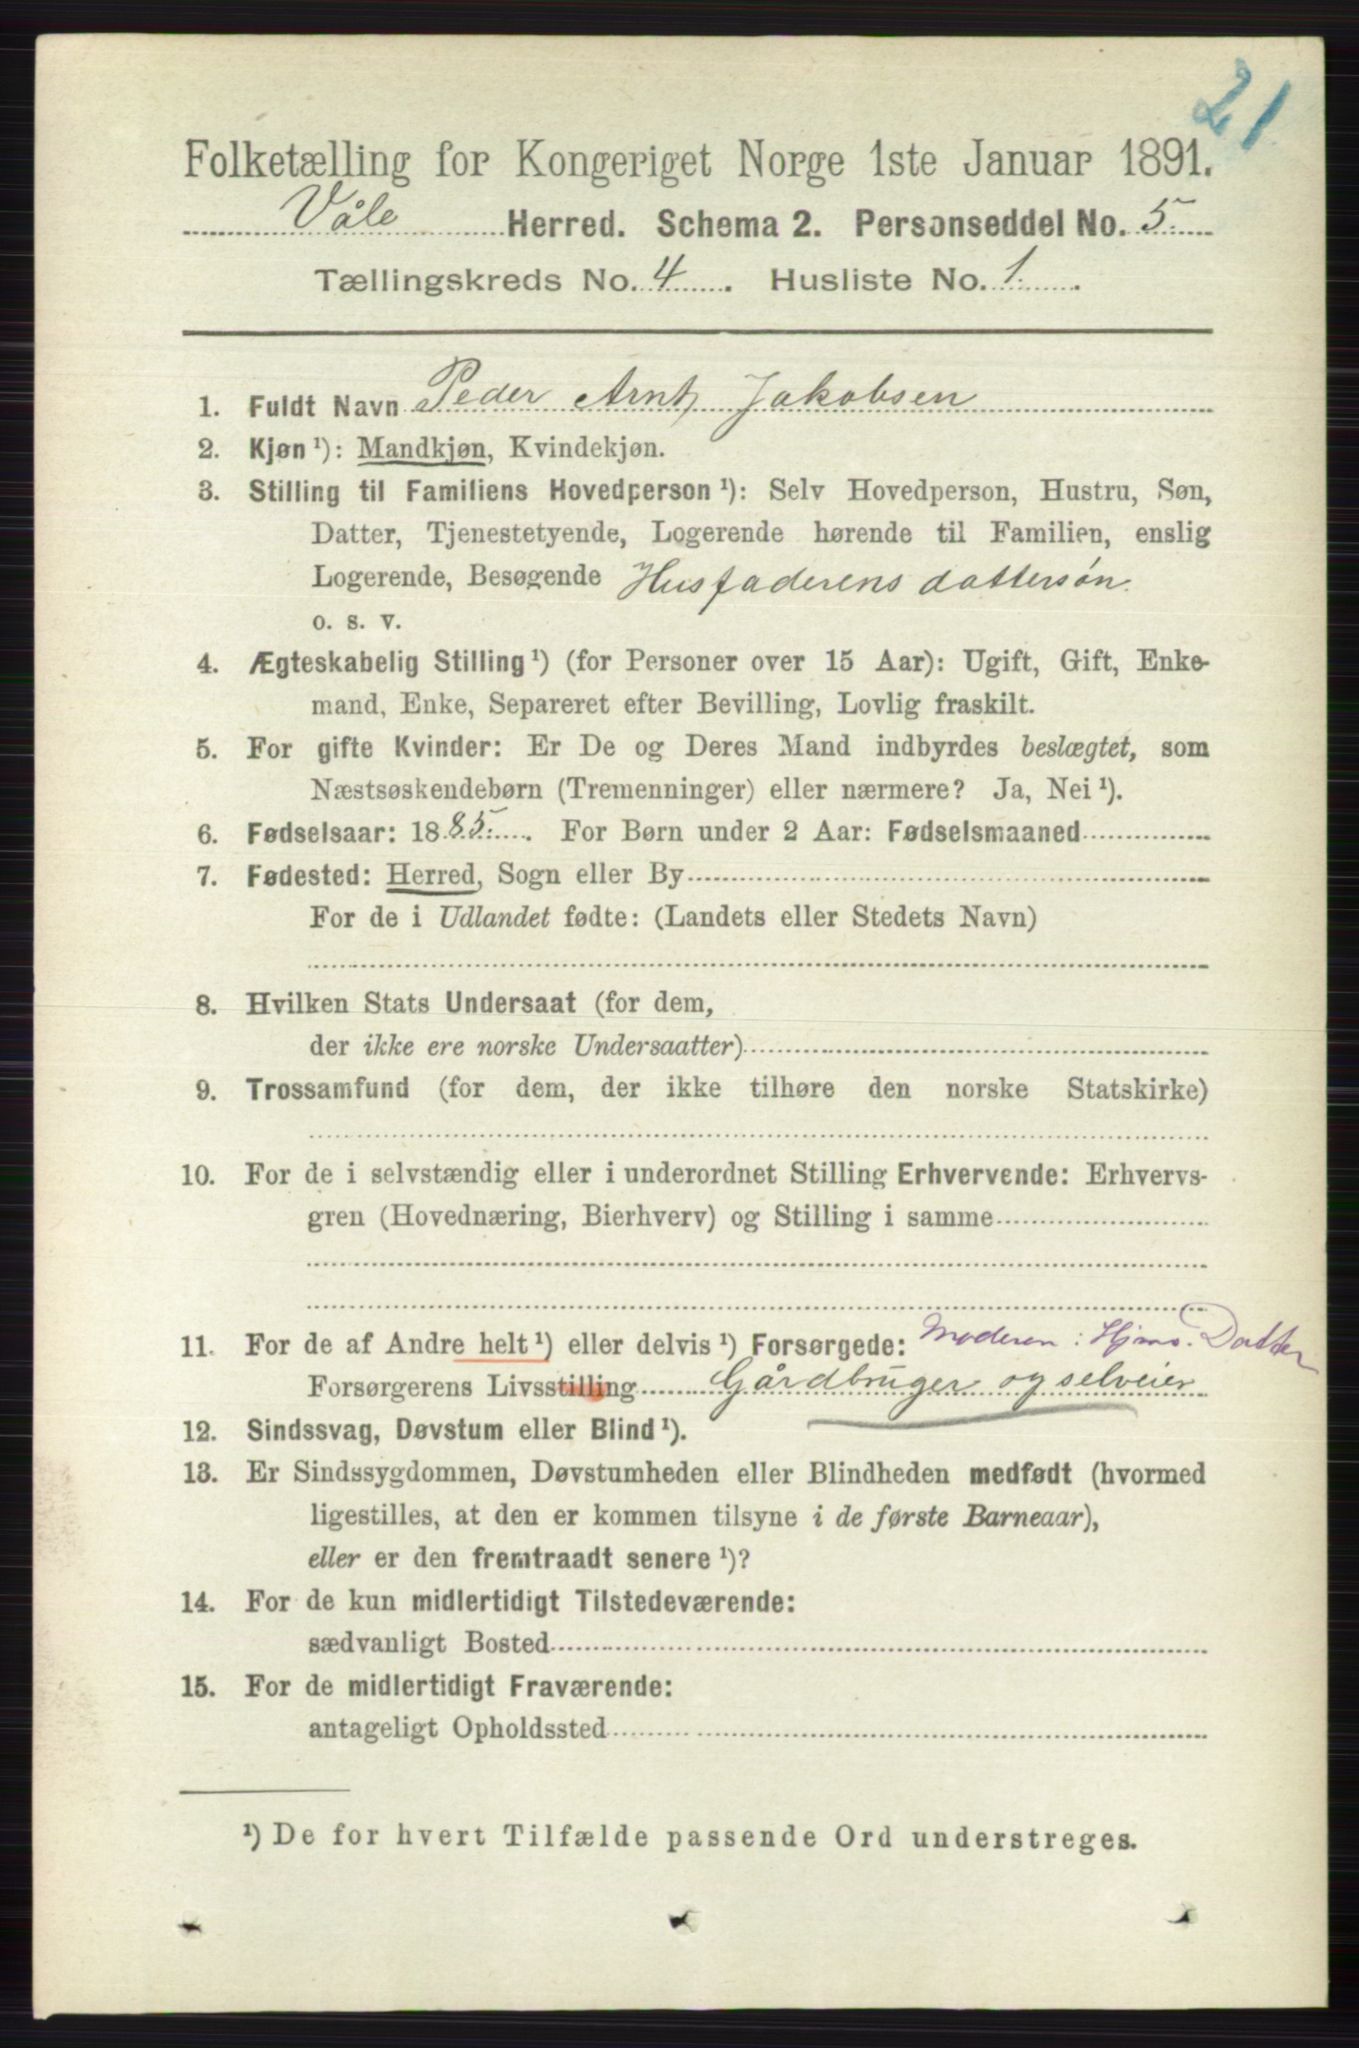 21
Folketælling for Kongeriget Norge 1ste Januar 1891.
Våle Herred. Schema 2. Personseddel No. 5.
Tællingskreds No. 4. Husliste No. 1.
1. Fuldt Navn Peder Arnt Jakobsen
2. Kjøn ¹): Mandkjøn, Kvindekjøn.
3. Stilling til Familiens Hovedperson ¹): Selv Hovedperson, Hustru, Søn,
Datter, Tjenestetyende, Logerende hørende til Familien, enslig
Logerende, Besøgende Husfaderens dattersøn.
o. s. v.
4. Ægteskabelig Stilling ¹) (for Personer over 15 Aar): Ugift, Gift, Enke-
mand, Enke, Separeret efter Bevilling, Lovlig fraskilt.
5. For gifte Kvinder: Er De og Deres Mand indbyrdes beslægtet, som
Næstsøskendebørn (Tremenninger) eller nærmere? Ja, Nei ¹).
6. Fødselsaar: 1885. For Børn under 2 Aar: Fødselsmaaned
7. Fødested: Herred, Sogn eller By
For de i Udlandet fødte: (Landets eller Stedets Navn)
8. Hvilken Stats Undersaat (for dem,
der ikke ere norske Undersaatter)
9. Trossamfund (for dem, der ikke tilhøre den norske Statskirke)
10. For de i selvstændig eller i underordnet Stilling Erhvervende: Erhvervs-
gren (Hovednæring, Bierhverv) og Stilling i samme
11. For de af Andre helt ¹) eller delvis ¹) Forsørgede: Moderen: Hjmv. Datter
Forsørgerens Livsstilling Gårdbruger og selveier
12. Sindssvag, Døvstum eller Blind ¹).
13. Er Sindssygdommen, Døvstumheden eller Blindheden medfødt (hvormed
ligestilles, at den er kommen tilsyne i de første Barneaar),
eller er den fremtraadt senere ¹)?
14. For de kun midlertidigt Tilstedeværende:
sædvanligt Bosted
15. For de midlertidigt Fraværende:
antageligt Opholdssted
¹) De for hvert Tilfælde passende Ord understreges.